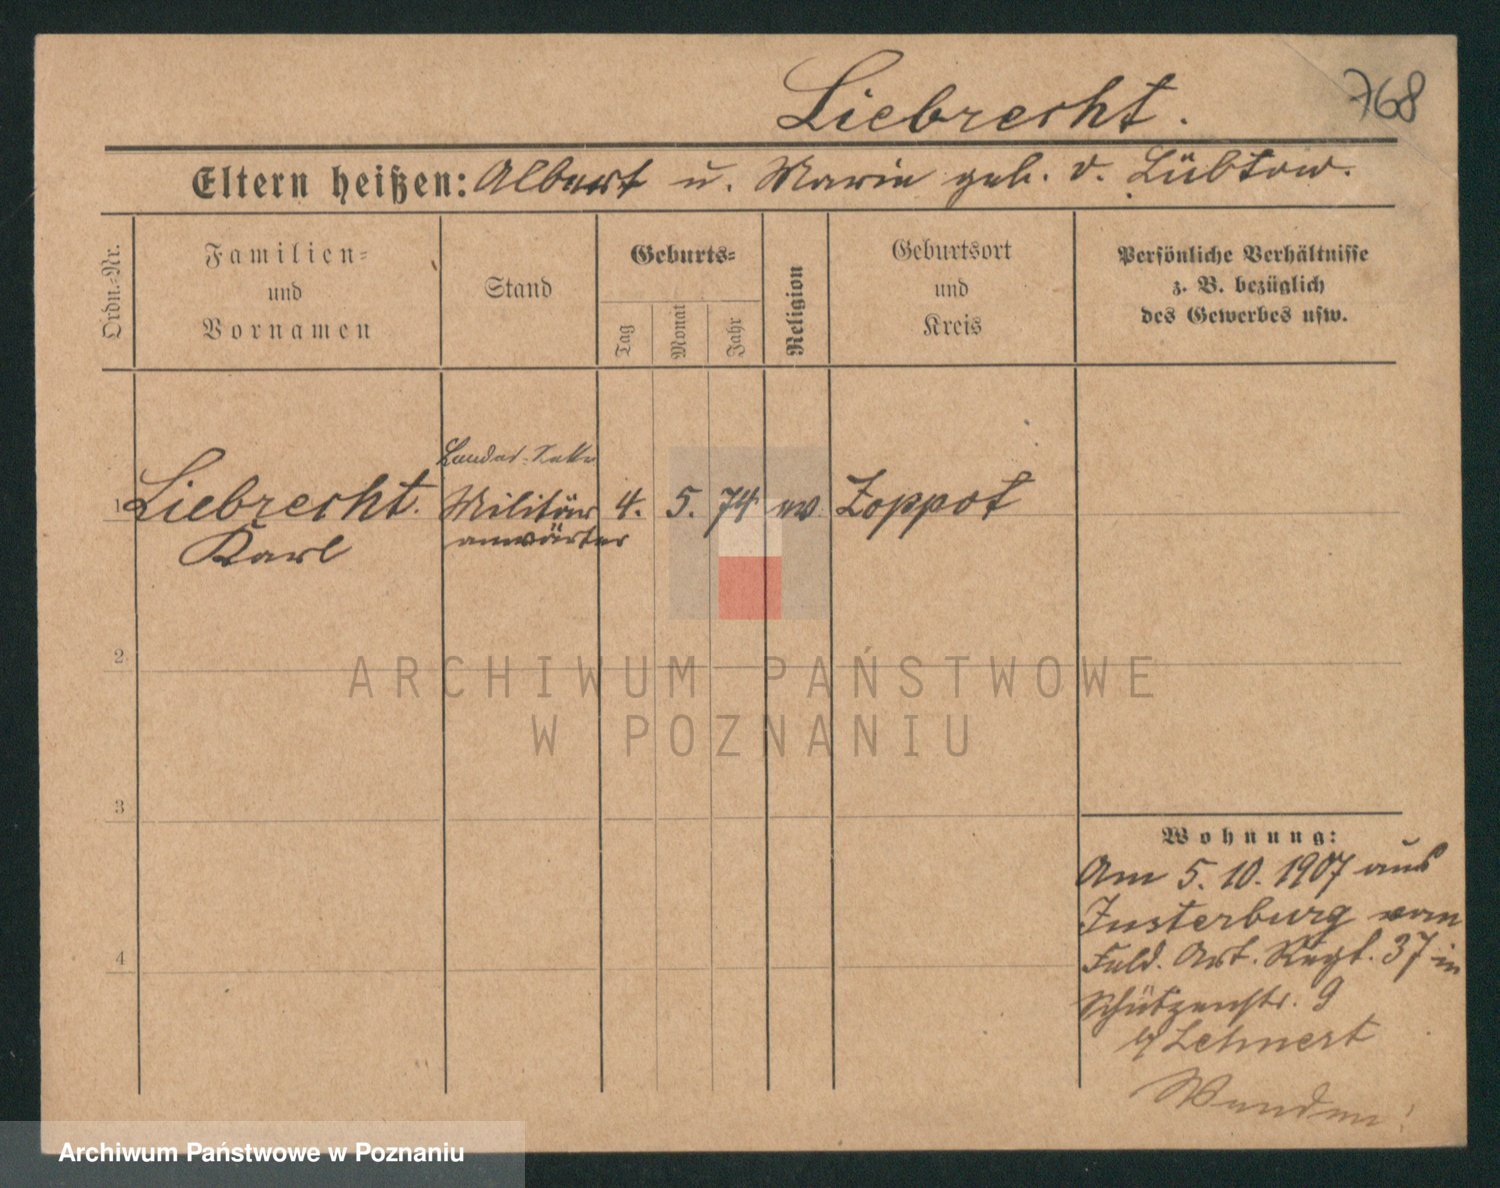 768
Liebrecht.
Eltern heißen: Albert u. Marie geb. v. Lübtow.
Ordn.-Nr.
Familien-
und
Vornamen
Stand
Geburts-
Tag
Monat
Jahr
Religion
Geburtsort
und
Kreis
Persönliche Verhältnisse
z. B. bezüglich
des Gewerbes usw.
1 Liebrecht. Militär 4. 5. 74 ev Zoppot
Karl anwärter
2
3
4
Wohnung:
Am 5. 10. 1907 aus
Insterburg vom
Feld. Art. Regt. 37 in
Schützenstr. 9
b/ Lehnert
ARCHIWUM PAŃSTWOWE
W POZNANIU
Archiwum Państwowe w Poznaniu